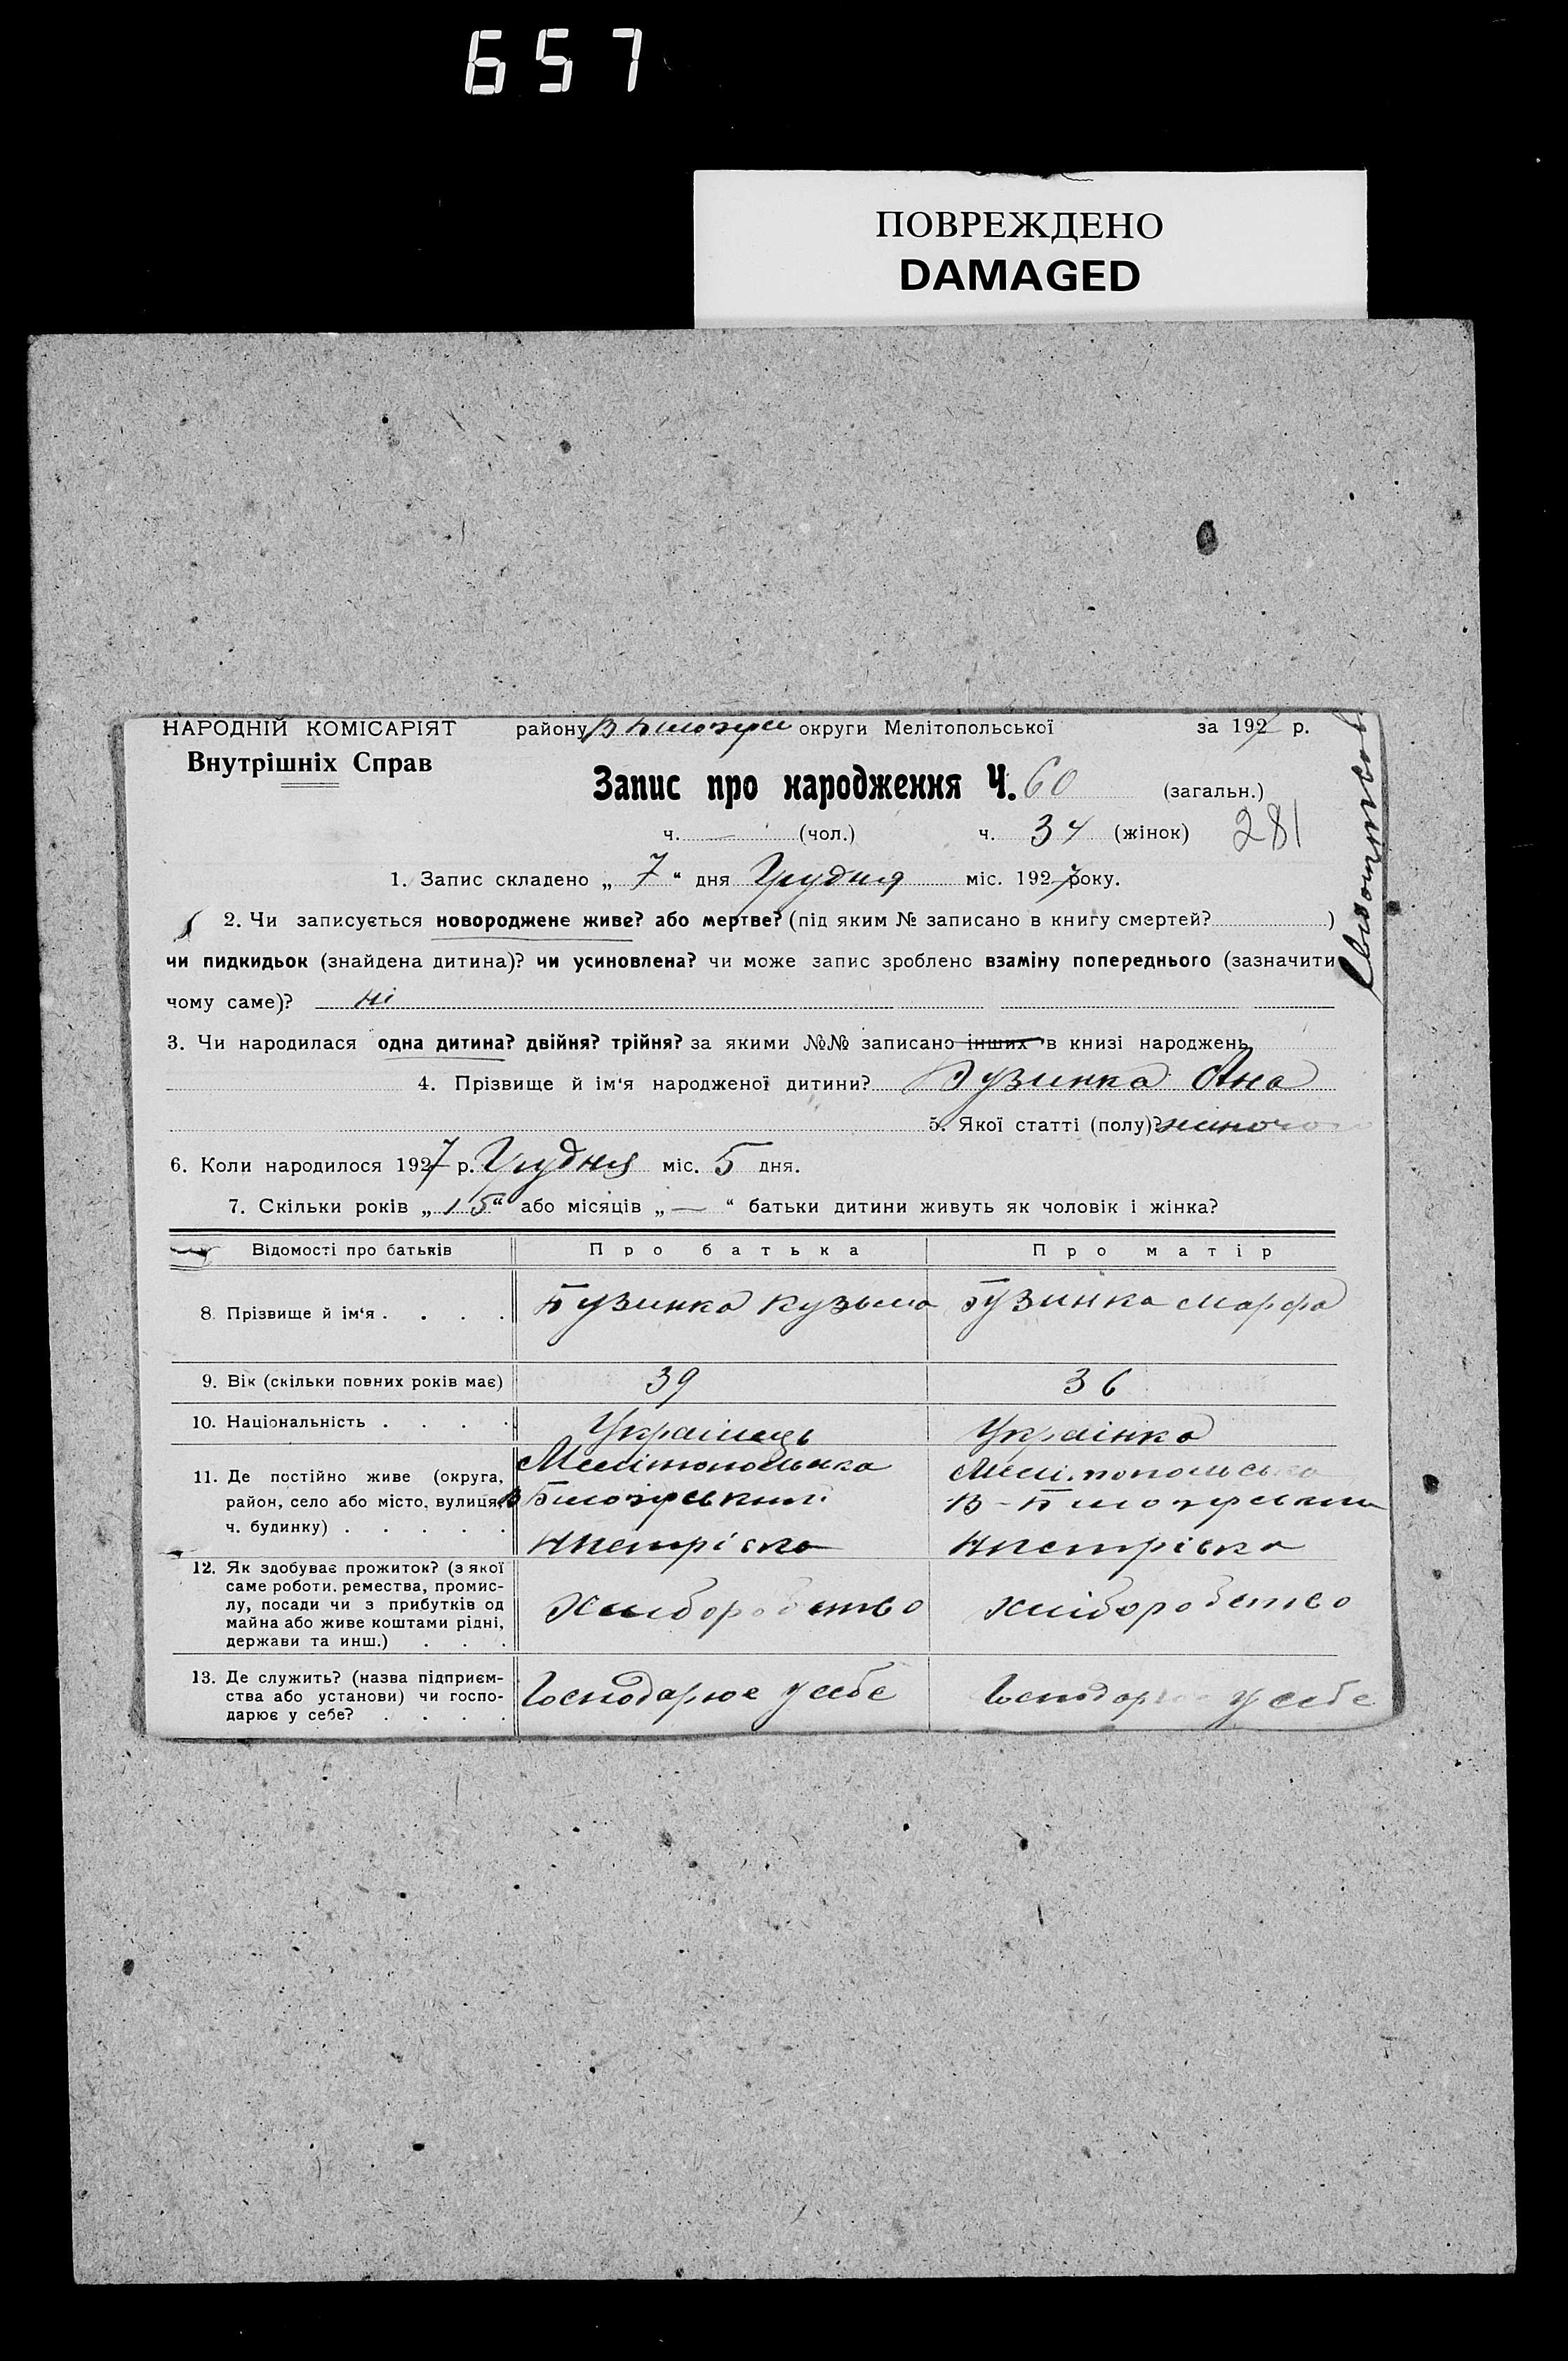 657
ПОВРЕЖДЕНО
DAMAGED
НАРОДНІЙ КОМІСАРІЯТ району В Білозерсь округи Мелітопольської за 1927 р.
Внутрішніх Справ
Запис про народження Ч. 60 (загальн.)
ч. — (чол.) ч. 34 (жінок) 281
1. Запис складено „ 7 “ дня Грудня міс. 1927 року.
2. Чи записується новороджене живе? або мертве? (під яким № записано в книгу смертей? )
чи пидкидьок (знайдена дитина)? чи усиновлена? чи може запис зроблено взаміну попереднього (зазначити
чому саме)? ні
3. Чи народилася одна дитина? двійня? трійня? за якими №№ записано інших в книзі народжень
4. Прізвище й ім'я народженої дитини? Бузинка Ана
5. Якої статті (полу)? жіночо
6. Коли народилося 1927 р. Грудня міс. 5 дня.
7. Скільки років „ 15 “ або місяців „ — “ батьки дитини живуть як чоловік і жінка?
Відомості про батьків Про батька Про матір
8. Прізвище й ім'я . . . . Бузинка Кузьма Бузинка Марфа
9. Вік (скільки повних років має) 39 36
10. Національність . . . . Украінець Украінка
11. Де постійно живе (округа, Мелітопольська Мелітопольська
район, село або місто, вулиця, В Білозерський В-Білозерський
ч. будинку) . . . . .
12. Як здобуває прожиток? (з якої
саме роботи. ремества, промис-
лу, посади чи з прибутків од Хлиборобство Хліборобство
майна або живе коштами рідні,
держави та инш.) . . .
13. Де служить? (назва підприєм-
ства або установи) чи госпо- Господарює у себе Господарює у себе
дарює у себе? . . . .